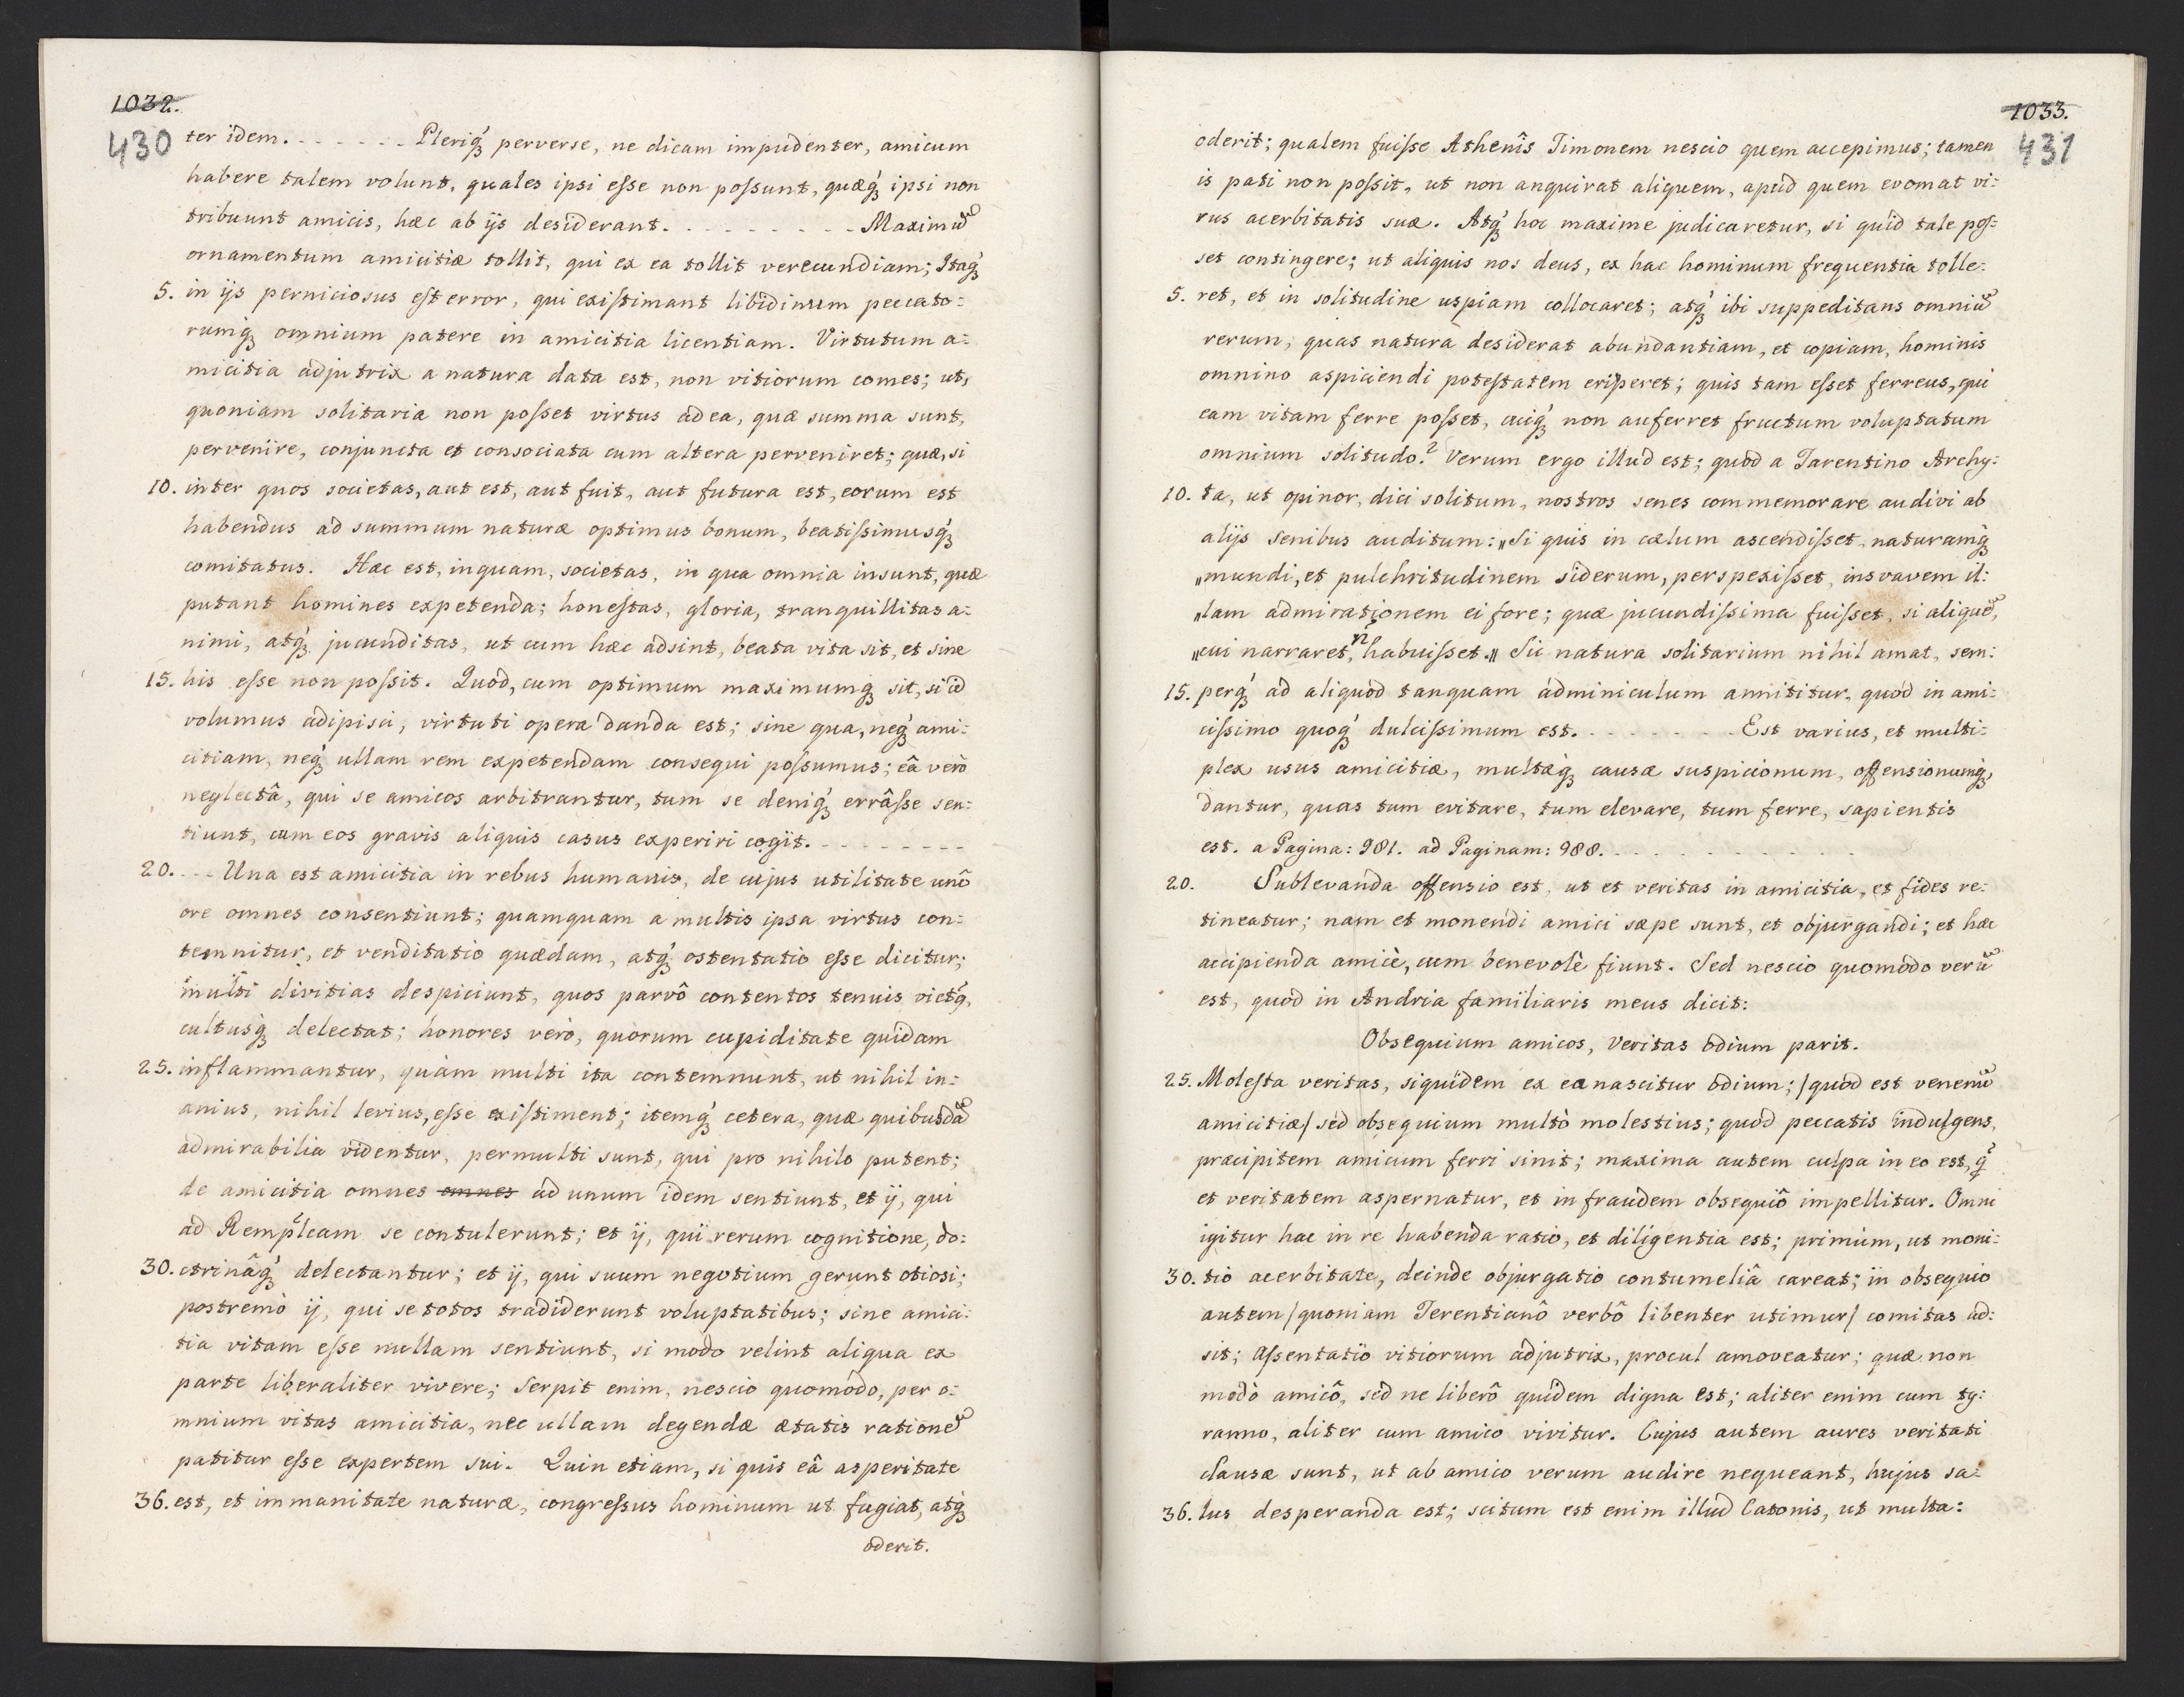 1032.
430
ter idem. - - - - - - - Pleriq́ꝫ perverse, ne dicam impudenter, amicum
habere talem volunt, quales ipsi esse non possunt, quæq́ꝫ ipsi non
tribuunt amicis, hæc ab ijs desiderant. - - - - - - - - - Maximū
ornamentum amicitiæ tollit, qui ex ea tollit verecundiam; Itaq́ꝫ
5. in ijs perniciosus est error, qui existimant libidinum peccato:
rumq́ꝫ omnium patere in amicitia licentiam. Virtutum a:
micitia adjutrix a natura data est, non vitiorum comes; ut,
quoniam solitaria non posset virtus ad ea, quæ summa sunt,
pervenire, conjuncta et consociata cum altera perveniret; quæ, si
10. inter quos societas, aut est, aut fuit, aut futura est, eorum est
habendus ad summum naturæ optimus bonum, beatissimusq́ꝫ
comitatus. Hæc est, inquam, societas, in qua omnia insunt, quæ
putant homines expetenda; honestas, gloria, tranquillitas a:
nimi, atq́ꝫ jucunditas, ut cum hæc adsint, beata vita sit, et sine
15. his esse non possit. Quod, cum optimum maximumq́ꝫ sit, si id
volumus adipisci, virtuti opera danda est; sine qua, neq́ꝫ ami:
citiam, neq́ꝫ ullam rem expetendam consequi possumus; eâ verò
neglectâ, qui se amicos arbitrantur, tum se deniq́ꝫ errâsse sen:
tiunt, cum eos gravis aliquis casus experiri cogit. - - - - - - - -
20. - - - Una est amicitia in rebus humanis, de cujus utilitate unô
ore omnes consentiunt; quamquam a multis ipsa virtus con:
temnitur, et venditatio quædam, atq́ꝫ ostentatio esse dicitur;
multi divitias despiciunt, quos parvô contentos tenuis victq,
cultusq́ꝫ delectat; honores verò, quorum cupiditate quidam
25. inflammantur, quàm multi ita contemnunt, ut nihil in:
anius, nihil levius, esse existiment; itemq́ꝫ cetera, quæ quibusdā
admirabilia videntur, permulti sunt, qui pro nihilo putent;
de amicitia omnes omnes ad unum idem sentiunt, et ij, qui
ad Remplcam se contulerunt; et ij, qui rerum cognitione, do:
30. ctrinâq́ꝫ delectantur; et ij, qui suum negotium gerunt otiosi;
postremò ij, qui se totos tradiderunt voluptatibus; sine amici:
tia vitam esse nullam sentiunt, si modo velint aliqua ex
parte liberaliter vivere; Serpit enim, nescio quomodo, per o:
mnium vitas amicitia, nec ullam degendæ ætatis rationē
patitur esse expertem sui. Quin etiam, si quis eâ asperitate
36. est, et immanitate naturæ, congressus hominum ut fugiat, atq́ꝫ
oderit.
1033.
431
oderit; qualem fuisse Athenîs Timonem nescio quem accepimus; tamen
is pati non possit, ut non anquirat aliquem, apud quem evomat vi:
rus acerbitatis suæ. Atq́ꝫ hoc maxime judicaretur, si quid tale pos:
set contingere; ut aliquis nos deus, ex hac hominum frequentia tolle:
5. ret, et in solitudine uspiam collocaret; atq́ꝫ ibi suppeditans omniū
rerum, quas natura desiderat abundantiam, et copiam, hominis
omnino aspiciendi potestatem eriperet; quis tam esset ferreus, qui
eam vitam ferre posset, cuiq́ꝫ non auferret fructum voluptatum
omnium solitudo? Verum ergo illud est; quod a Tarentino Archy:
10. ta, ut opinor, dici solitum, nostros senes commemorare audivi ab
alijs senibus auditum: „Si quis in cælum ascendisset, naturamq́ꝫ
„mundi, et pulchritudinem siderum, perspexisset, insvavem il:
„lam admirationem ei fore; quæ jucundissima fuisset, si aliquē,
„cui narraret, n habuisset.„ Sic natura solitarium nihil amat, sem:
15. perq́ꝫ ad aliquod tanquam adminiculum annititur, quod in ami:
cissimo quoq́ꝫ dulcissimum est. - - - - - - - - Est varius, et multi:
plex usus amicitiæ, multæq́ꝫ causæ suspicionum, offensionumq́ꝫ,
dantur, quas tum evitare, tum elevare, tum ferre, sapientis
est. a Pagina: 981. ad Paginam: 988. - - - - - - - - - -
20. Sublevanda offensio est, ut et veritas in amicitia, et fides re:
tineatur; nam et monendi amici sæpe sunt, et objurgandi; et hæc
accipienda amicè, cum benevolè fiunt. Sed nescio quomodo verū
est, quod in Andria familiaris meus dicit:
Obsequium amicos, Veritas odium parit.
25. Molesta veritas, siquidem ex ea nascitur odium; /quod est venenū
amicitiæ/ sed obsequium multò molestius; quod peccatis indulgens,
præcipitem amicum ferri sinit; maxima autem culpa in eo est, q̃
et veritatem aspernatur, et in fraudem obsequiô impellitur. Omni
igitur hac in re habenda ratio, et diligentia est; primùm, ut moni:
30. tio acerbitate, deinde objurgatio contumeliâ careat; in obsequio
autem /quoniam Terentianô verbô libenter utimur/ comitas ad:
sit; Assentatio vitiorum adjutrix, procul amoveatur; quæ non
modò amicô, sed ne liberô quidem digna est; aliter enim cum ty:
ranno, aliter cum amico vivitur. Cujus autem aures veritati
clausæ sunt, ut ab amico verum audire nequeant, hujus sa:
36. lus desperanda est; scitum est enim illud Catonis, ut multa: